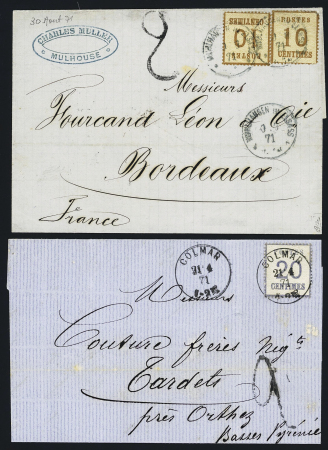 30 Aout 71
CHARLES MULLER
MULHOUSE
2
POSTES
10
CENTIMES
POSTES
10
CENTIMES
Messieurs
Fourcand Léon & Cie
Bordeaux
71
France
COLMAR
21 4
71
COLMAR
21 4
71
20
CENTIMES
Messieurs
Couture frères Nég ts
Tardets
près Orthez
Basses Pyrénées